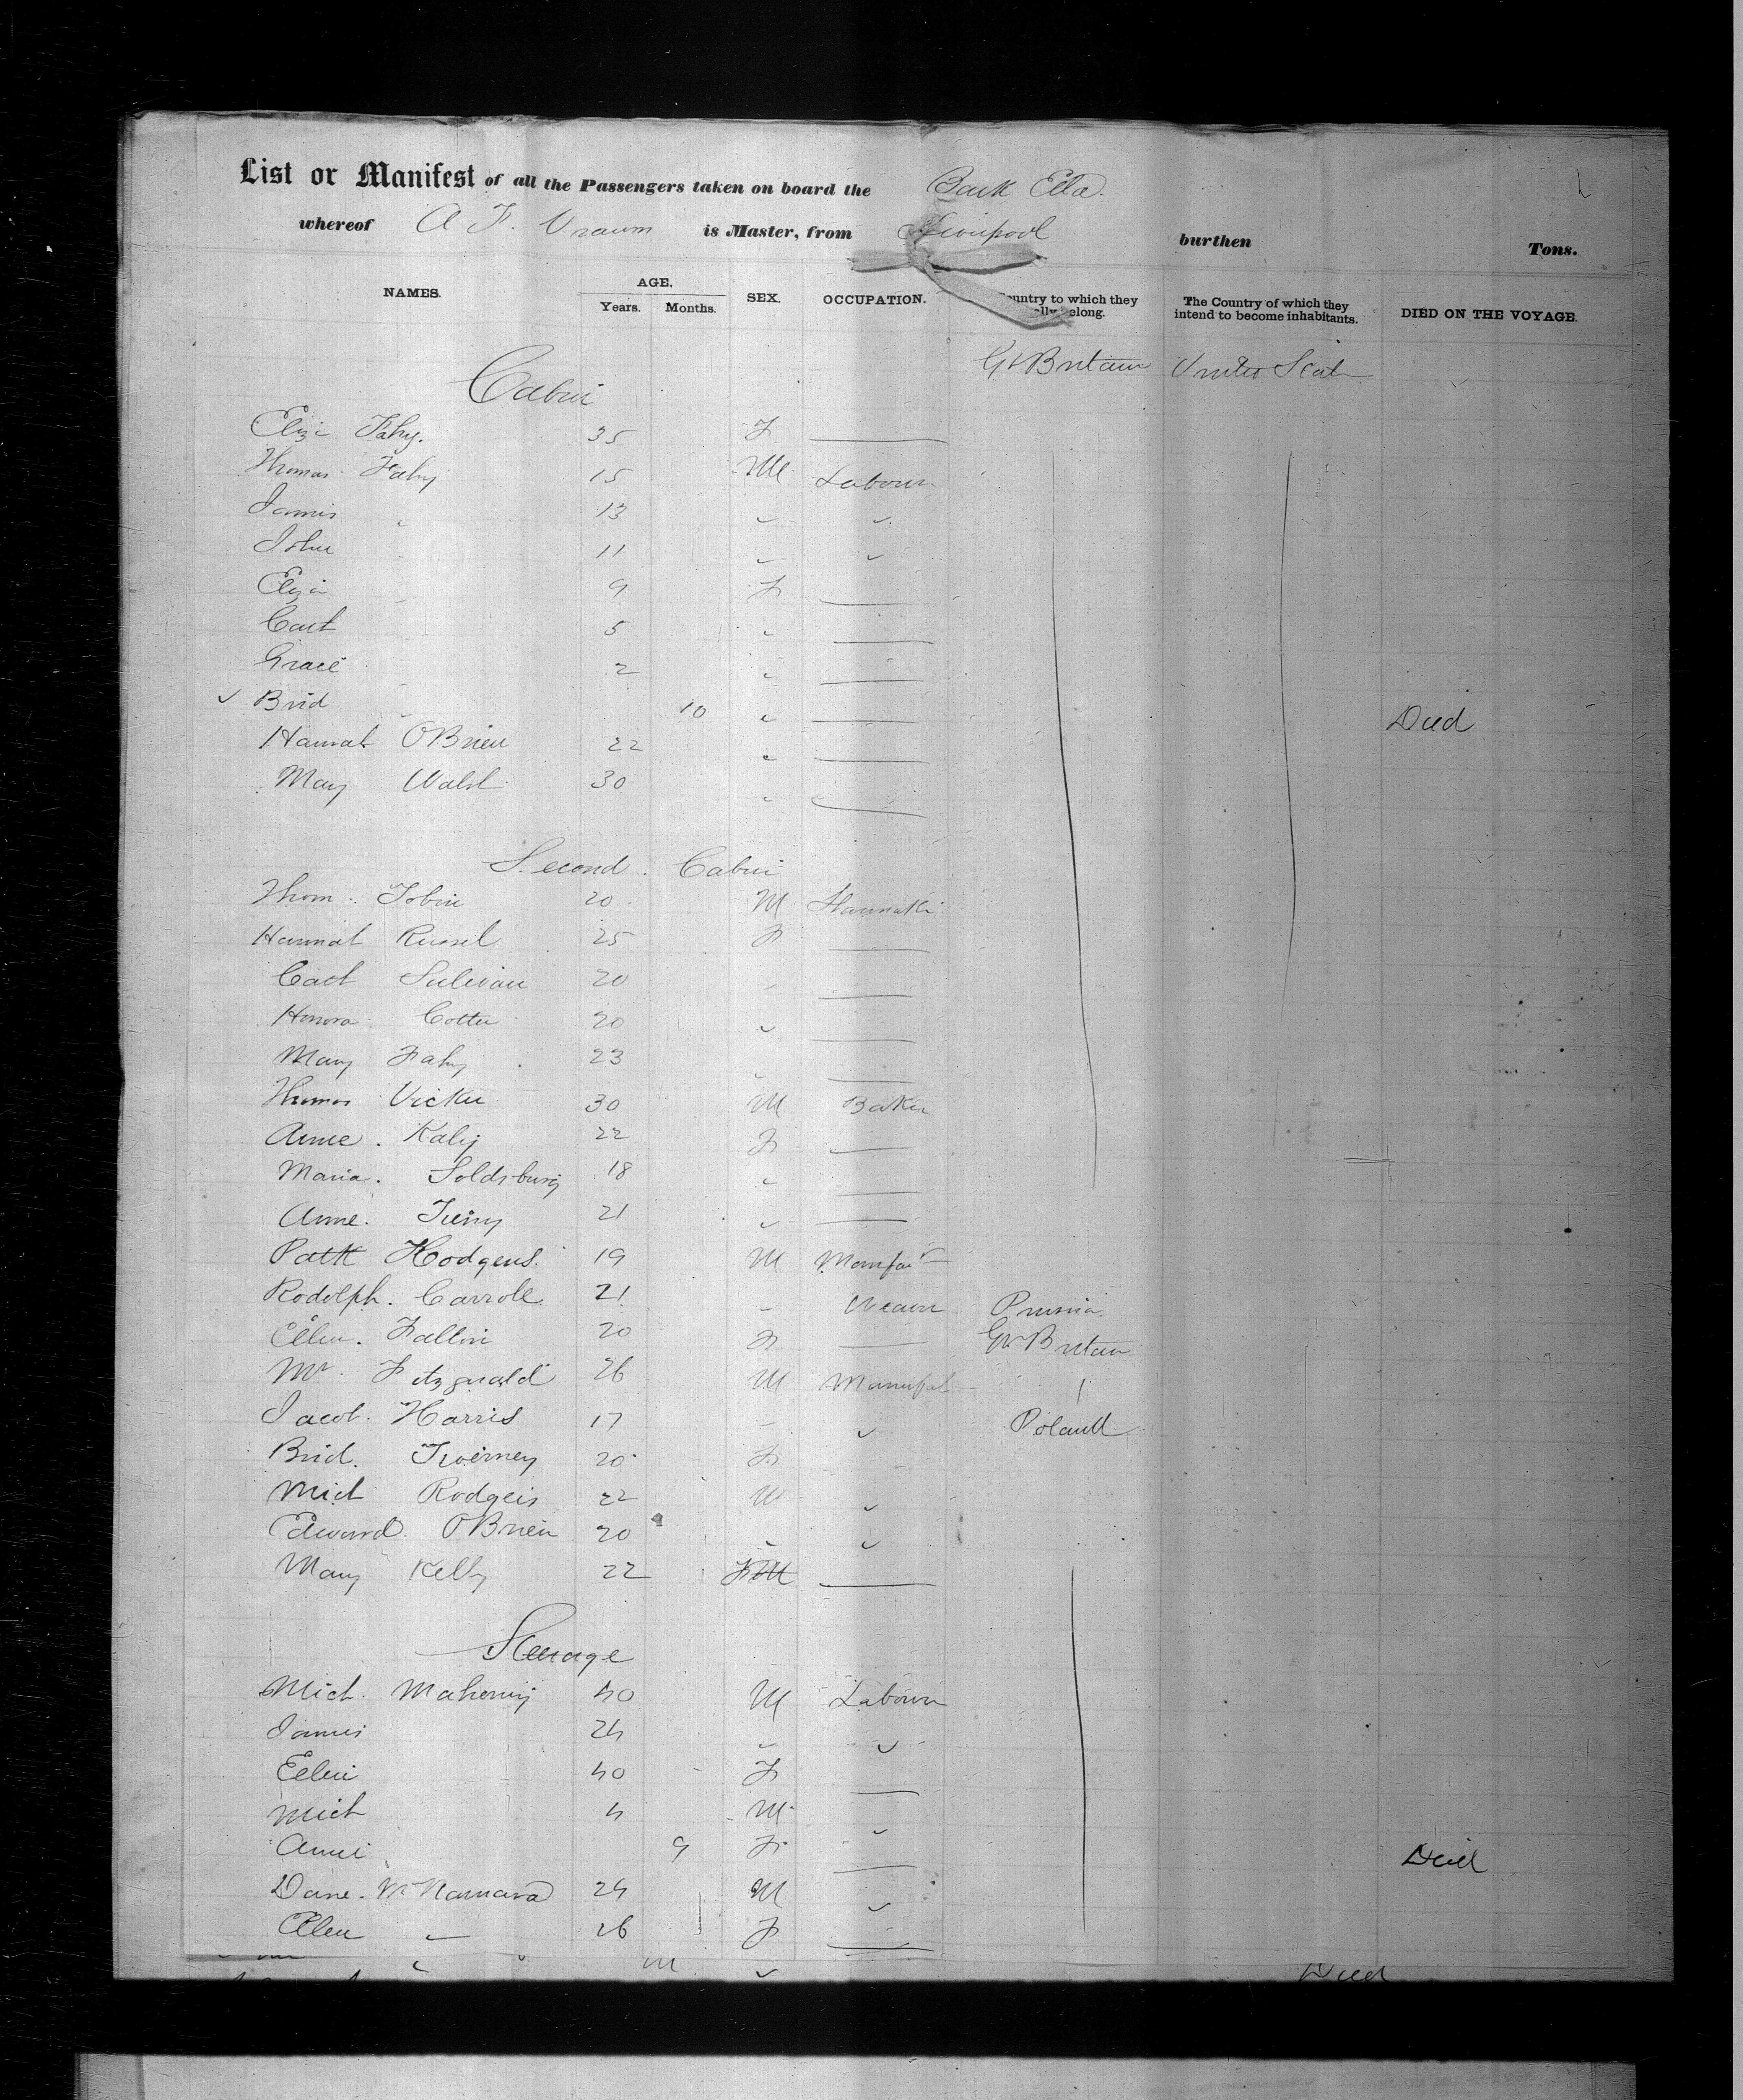 List or Manifest of all the Passengers taken on board the Bark Ella
whereof A F. is Master, from Liverpool burthen Tons.
NAMES. AGE. Years. Months. SEX. OCCUPATION. Country to which they belong. The Country of which they intend to become inhabitants. DIED ON THE VOYAGE.
Gt Britain United Stat
Cabin
Eliza Fahy. 35 F
Thomas Fahy 15 M Labourer
James " 13
John 11
Eliza 9 F
Cath 5
Grace 2
✓ Brid 10 Died
Hannah OBrien 22
Mary Walsh 30
Second Cabin
Thom Tobin 20 M
Hannah Russel 25 F
Cath Sulivan 20
Honora Cotter 20
Mary Fahy 23
Thomas 30 M Baker
Anne Kaly 22 F
Maria. Soldsbury 18
Anne. 21
Patk Hodgens. 19 M
Rodolph. Carroll. 21 Prussia
Ellen. Fallon 20 F Gt Britain
Mr. Fitzgerald 26 M Manufat
Jacob. Harris 17 Poland
Brid. 20 F
Mich Rodgers 22 M
Edward. OBrien 20
Mary Kelly 22 F
Steerage
Mich. Mahony 40 M Labourer
James 24
Ellen 40 F
Mich 4 M
Annie 9 F Died
Dane. McNamara 24 M
Ellen " 26 F
M Died